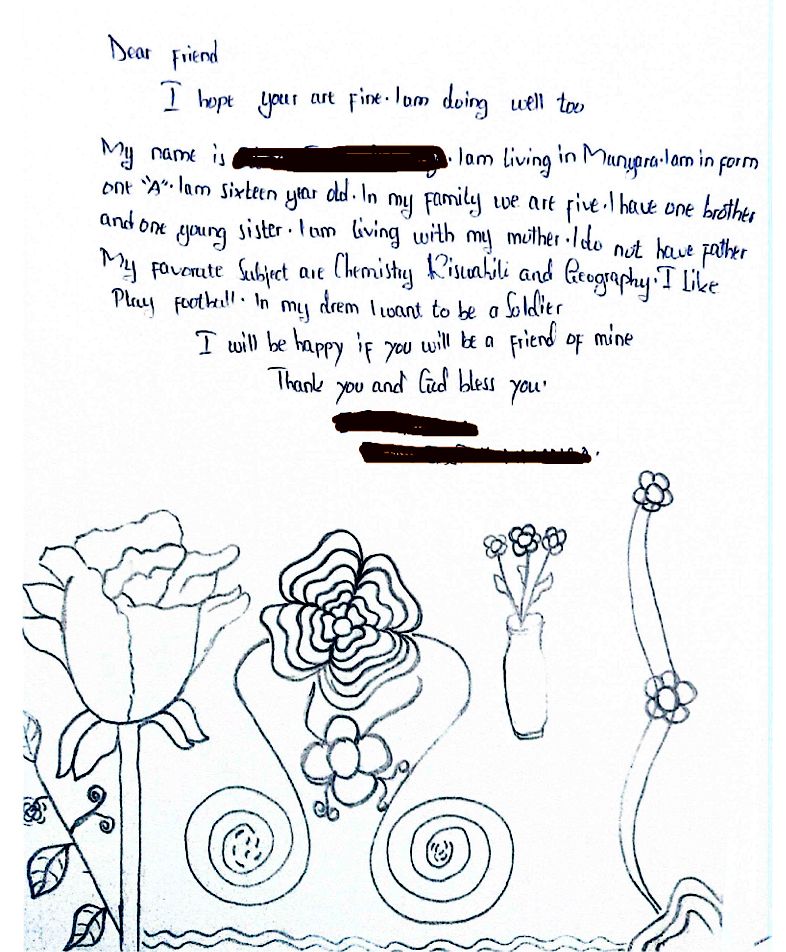 Dear friend
I hope your are fine. Iam doing well too
My name is . Iam living in Manyara. Iam in form
one "A". Iam sixteen year old. In my family we are five. I have one brother
and one young sister. I am living with my mother. I do not have father
My favorate Subject are Chemistry Kiswahili and Geography. I Like
Play football. In my drem I want to be a Soldier
I will be happy if you will be a friend of mine
Thank you and God bless you.